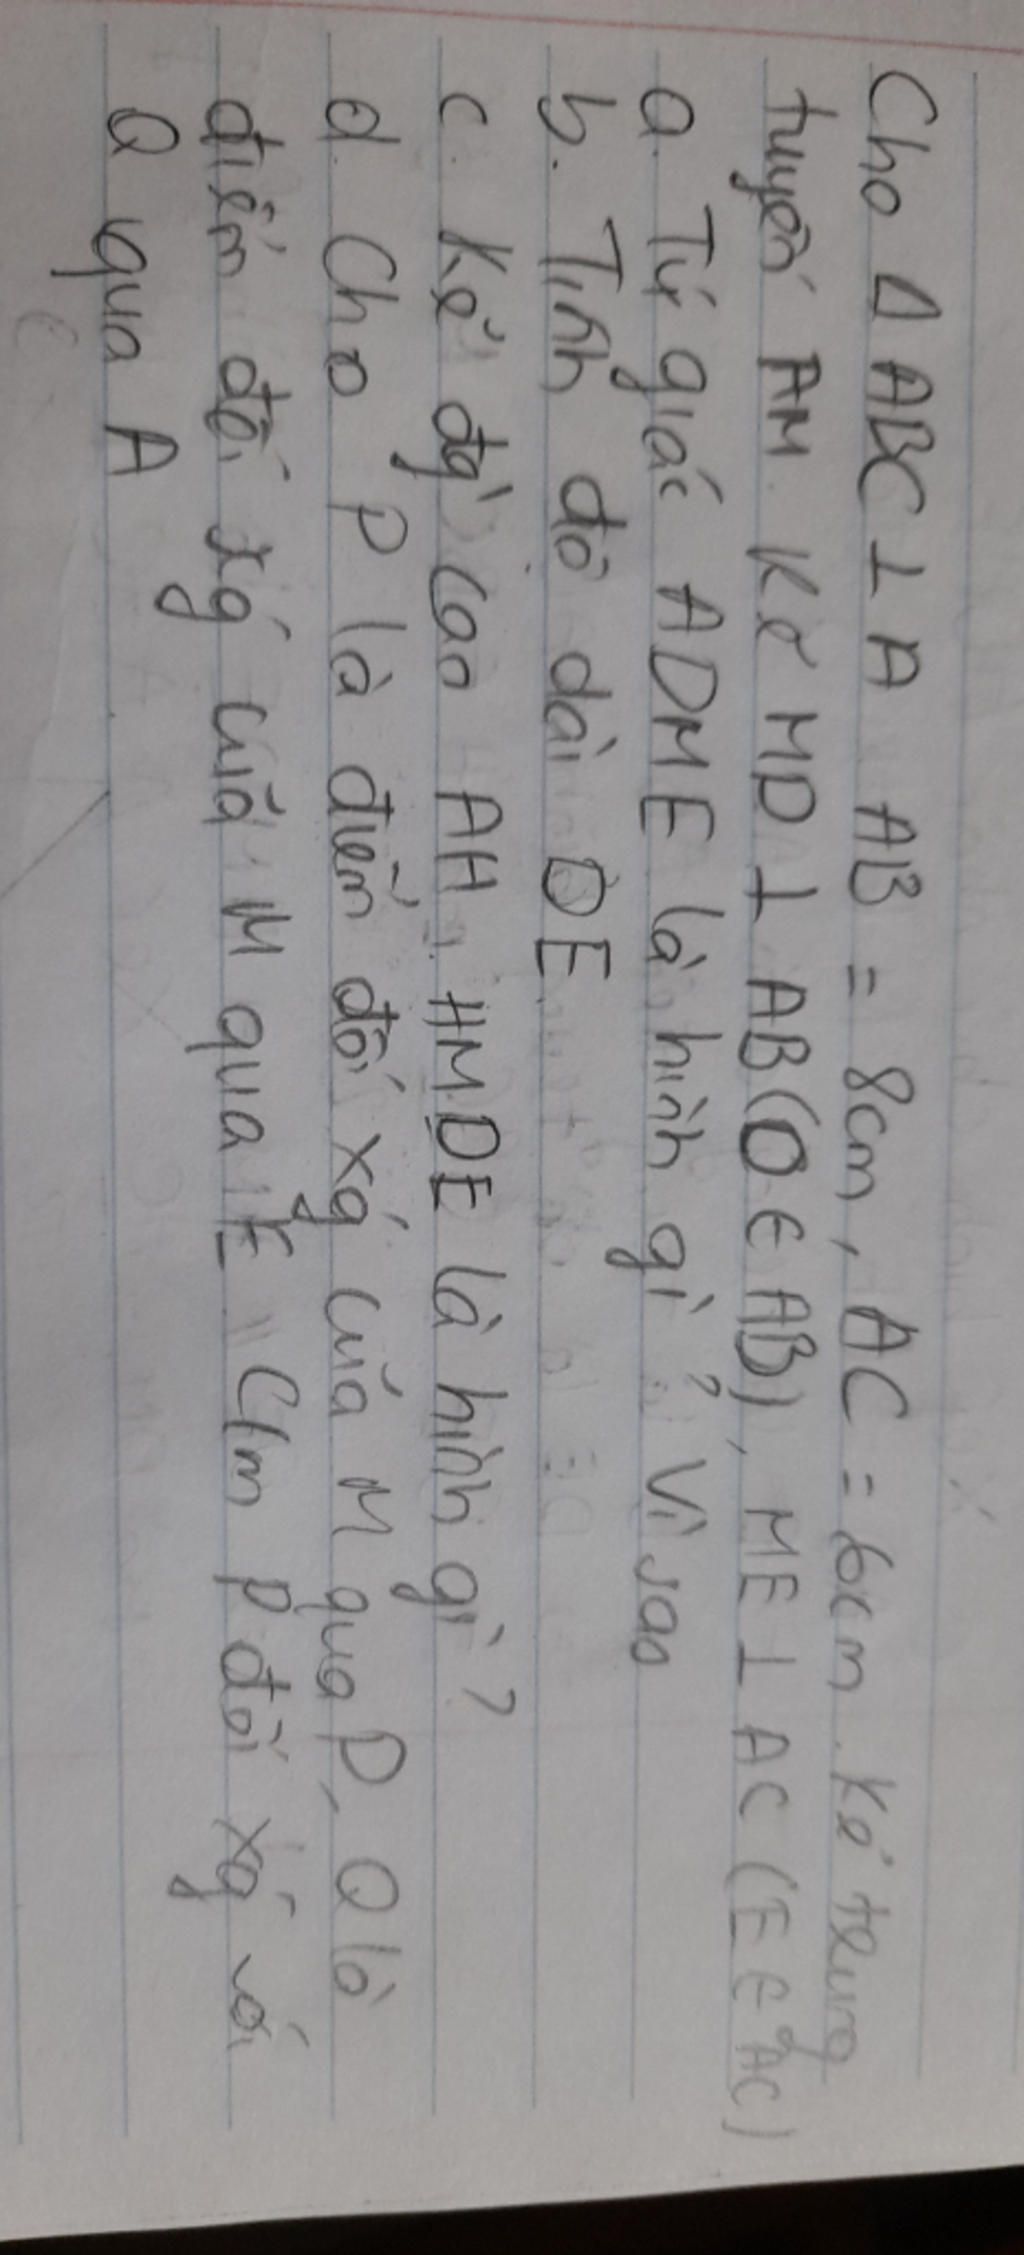 Cho Δ ABC ⊥ A AB = 8cm, AC = 6cm. Kẻ trung
tuyến AM. Kẻ MD ⊥ AB (D ∈ AB), ME ⊥ AC (E ∈ AC)
a. Tứ giác ADME là hình gì? Vì sao
b. Tính độ dài DE
c. Kẻ đg` cao AH. HMDE là hình gì?
d. Cho P là điểm đối xg´ của M qua D, Q là
điểm đối xg´ của M qua E. C/m P đối xg´ với
Q qua A